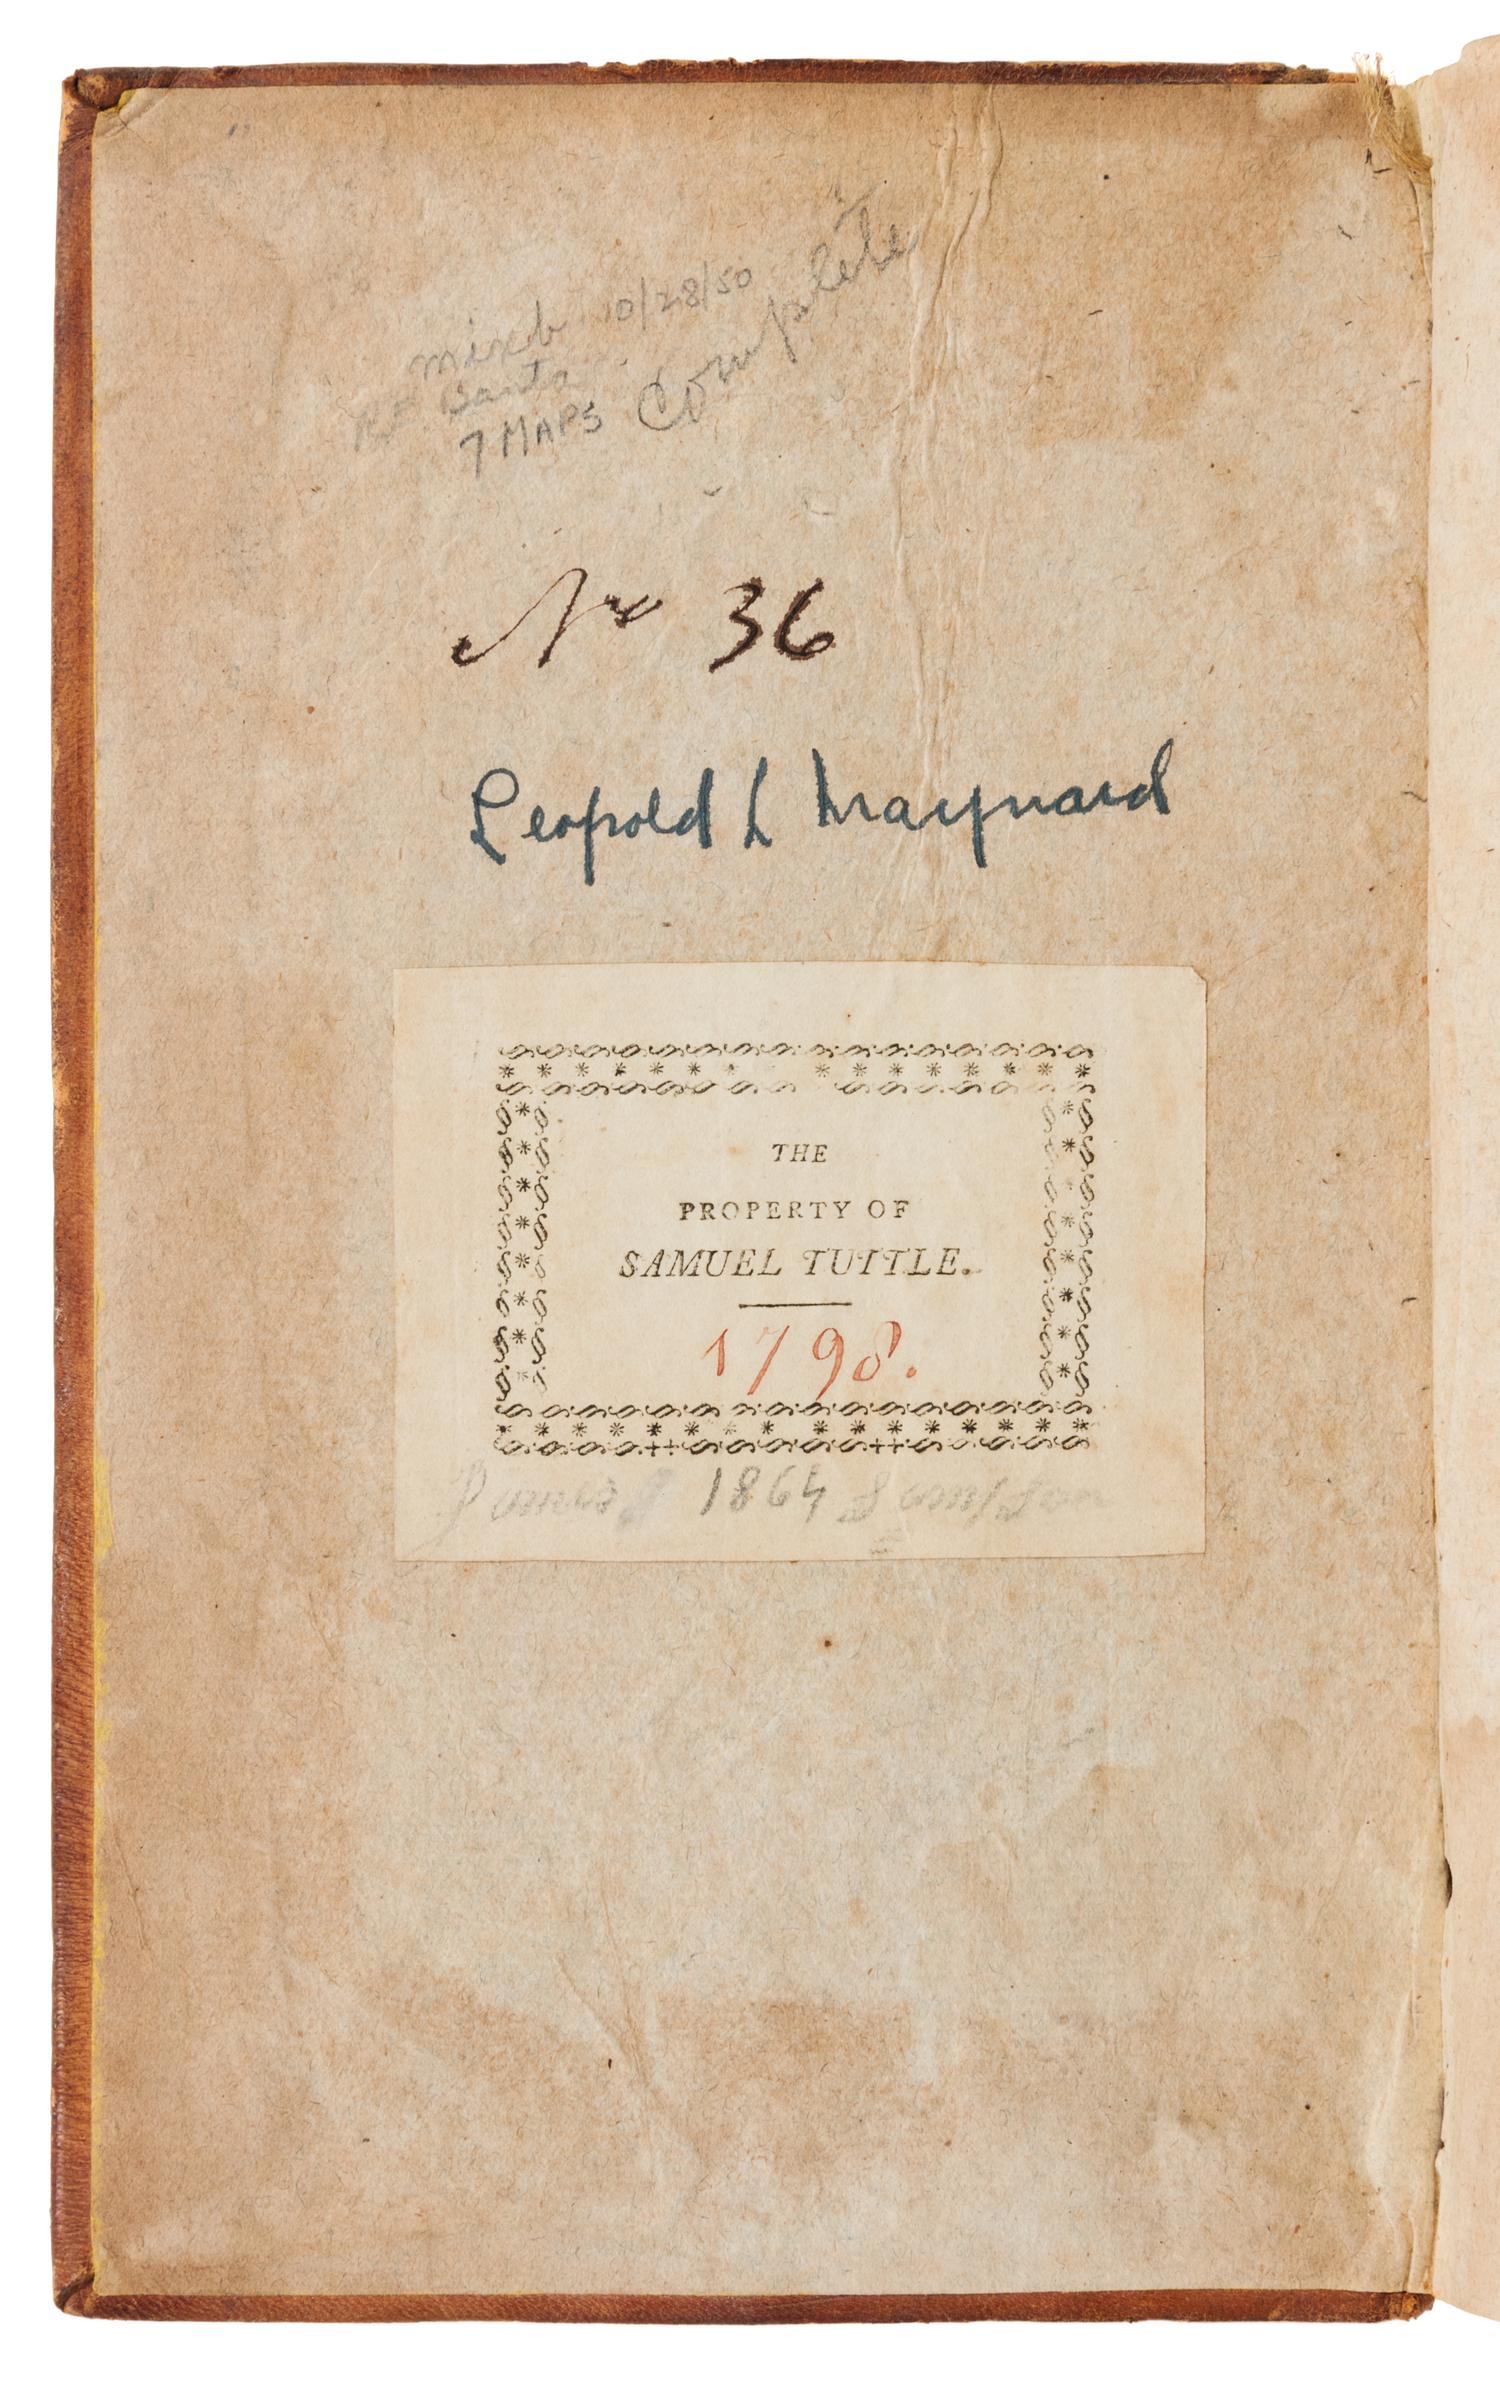 10/28/50
7 MAPS Complete
No 36
Leopold L Maynard
THE
PROPERTY OF
SAMUEL TUTTLE.
1798.
James 1864